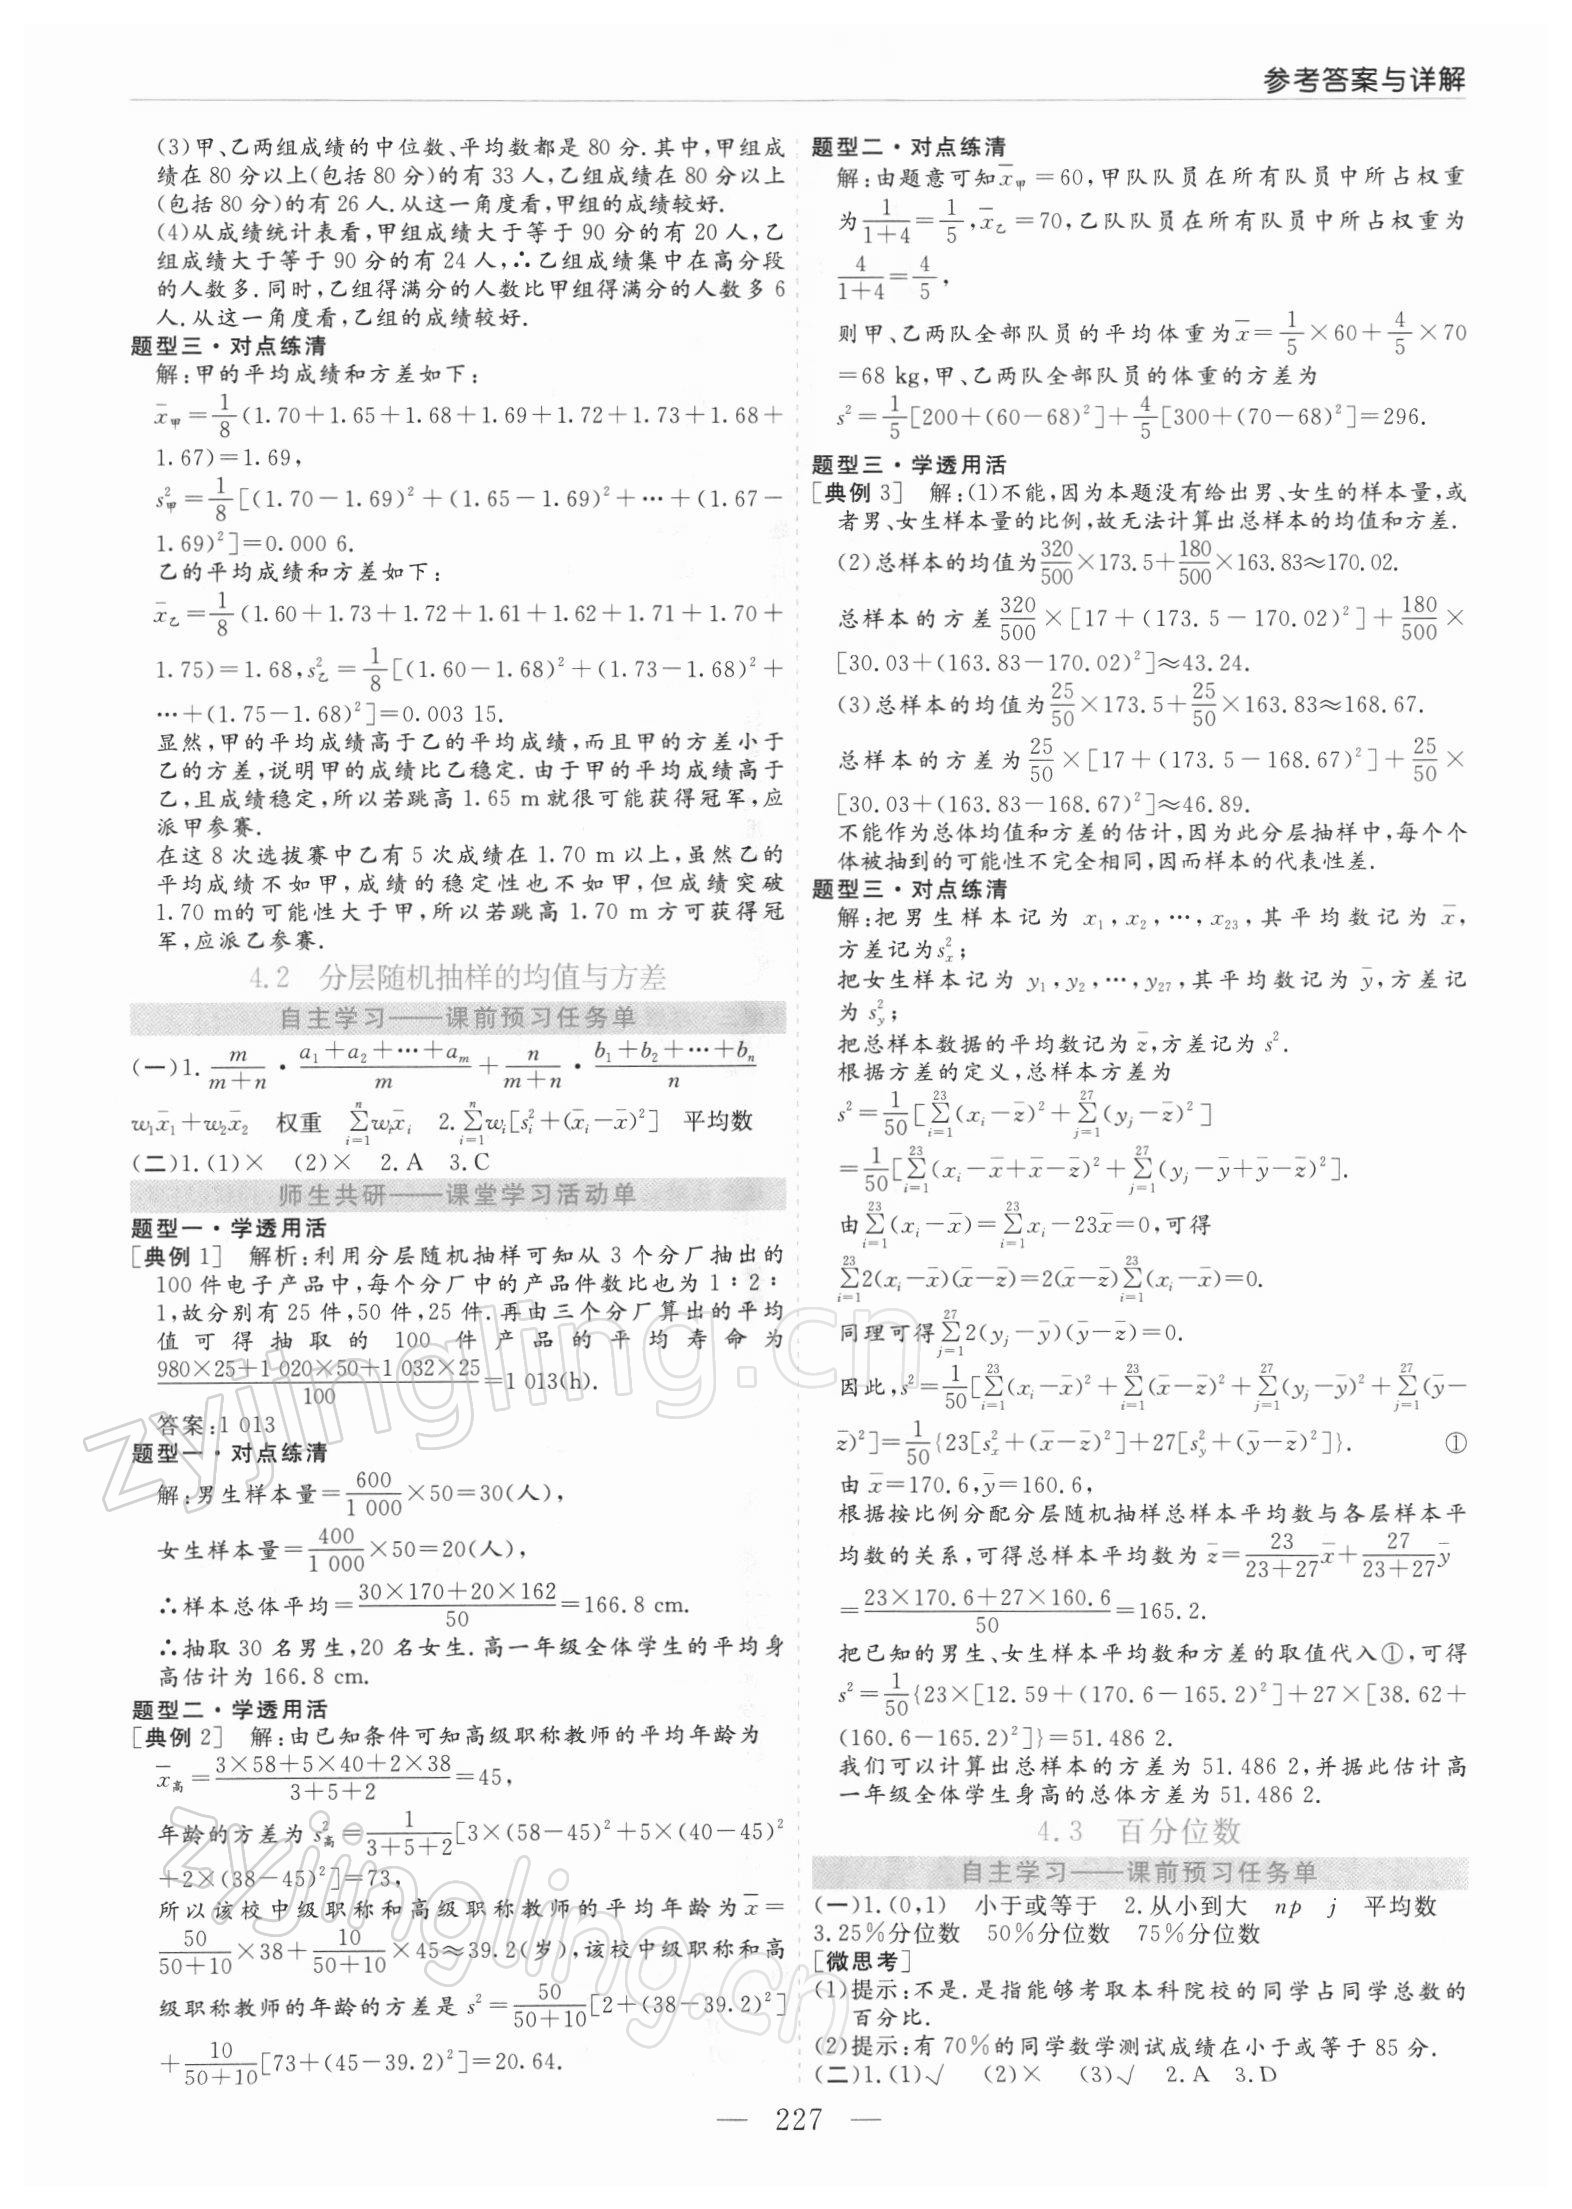 参考答案与详解
(3)甲、乙两组成绩的中位数、平均数都是 80 分.其中,甲组成
绩在 80 分以上(包括 80 分)的有 33 人,乙组成绩在 80 分以上
(包括 80 分)的有 26 人.从这一角度看,甲组的成绩较好.
(4)从成绩统计表看,甲组成绩大于等于 90 分的有 20 人,乙
组成绩大于等于 90 分的有 24 人,∴乙组成绩集中在高分段
的人数多.同时,乙组得满分的人数比甲组得满分的人数多 6
人.从这一角度看,乙组的成绩较好.
题型三·对点练清
解:甲的平均成绩和方差如下:
x̄甲=1/8(1.70+1.65+1.68+1.69+1.72+1.73+1.68+
1.67)=1.69,
s²甲=1/8[(1.70-1.69)²+(1.65-1.69)²+…+(1.67-
1.69)²]=0.000 6.
乙的平均成绩和方差如下:
x̄乙=1/8(1.60+1.73+1.72+1.61+1.62+1.71+1.70+
1.75)=1.68,s²乙=1/8[(1.60-1.68)²+(1.73-1.68)²+
…+(1.75-1.68)²]=0.003 15.
显然,甲的平均成绩高于乙的平均成绩,而且甲的方差小于
乙的方差,说明甲的成绩比乙稳定.由于甲的平均成绩高于
乙,且成绩稳定,所以若跳高 1.65 m 就很可能获得冠军,应
派甲参赛.
在这 8 次选拔赛中乙有 5 次成绩在 1.70 m 以上,虽然乙的
平均成绩不如甲,成绩的稳定性也不如甲,但成绩突破
1.70 m的可能性大于甲,所以若跳高 1.70 m 方可获得冠
军,应派乙参赛.
4.2 分层随机抽样的均值与方差
自主学习——课前预习任务单
(一)1. m/(m+n)·(a₁+a₂+…+aₘ)/m+n/(m+n)·(b₁+b₂+…+bₙ)/n
w₁x̄₁+w₂x̄₂ 权重 ∑ⁿᵢ₌₁wᵢx̄ᵢ 2.∑ⁿᵢ₌₁wᵢ[sᵢ²+(x̄ᵢ-x̄)²] 平均数
(二)1.(1)× (2)× 2.A 3.C
师生共研——课堂学习活动单
题型一·学透用活
[典例 1] 解析:利用分层随机抽样可知从 3 个分厂抽出的
100 件电子产品中,每个分厂中的产品件数比也为 1∶2∶
1,故分别有 25 件,50 件,25 件.再由三个分厂算出的平均
值可得抽取的 100 件产品的平均寿命为
(980×25+1 020×50+1 032×25)/100=1 013(h).
答案:1 013
题型一·对点练清
解:男生样本量=600/1 000×50=30(人),
女生样本量=400/1 000×50=20(人),
∴样本总体平均=(30×170+20×162)/50=166.8 cm.
∴抽取 30 名男生,20 名女生.高一年级全体学生的平均身
高估计为 166.8 cm.
题型二·学透用活
[典例 2] 解:由已知条件可知高级职称教师的平均年龄为
x̄高=(3×58+5×40+2×38)/(3+5+2)=45,
年龄的方差为 s²高=1/(3+5+2)[3×(58-45)²+5×(40-45)²
+2×(38-45)²]=73,
所以该校中级职称和高级职称教师的平均年龄为 x̄=
50/(50+10)×38+10/(50+10)×45≈39.2(岁),该校中级职称和高
级职称教师的年龄的方差是 s²=50/(50+10)[2+(38-39.2)²]
+10/(50+10)[73+(45-39.2)²]=20.64.
题型二·对点练清
解:由题意可知x̄甲=60,甲队队员在所有队员中所占权重
为1/(1+4)=1/5,x̄乙=70,乙队队员在所有队员中所占权重为
4/(1+4)=4/5,
则甲、乙两队全部队员的平均体重为x̄=1/5×60+4/5×70
=68 kg,甲、乙两队全部队员的体重的方差为
s²=1/5[200+(60-68)²]+4/5[300+(70-68)²]=296.
题型三·学透用活
[典例 3] 解:(1)不能,因为本题没有给出男、女生的样本量,或
者男、女生样本量的比例,故无法计算出总样本的均值和方差.
(2)总样本的均值为320/500×173.5+180/500×163.83≈170.02.
总样本的方差320/500×[17+(173.5-170.02)²]+180/500×
[30.03+(163.83-170.02)²]≈43.24.
(3)总样本的均值为25/50×173.5+25/50×163.83≈168.67.
总样本的方差为25/50×[17+(173.5-168.67)²]+25/50×
[30.03+(163.83-168.67)²]≈46.89.
不能作为总体均值和方差的估计,因为此分层抽样中,每个个
体被抽到的可能性不完全相同,因而样本的代表性差.
题型三·对点练清
解:把男生样本记为 x₁,x₂,…,x₂₃,其平均数记为 x̄,
方差记为sₓ²;
把女生样本记为 y₁,y₂,…,y₂₇,其平均数记为 ȳ,方差记
为 s²_y;
把总样本数据的平均数记为z̄,方差记为 s².
根据方差的定义,总样本方差为
s²=1/50[∑²³ᵢ₌₁(xᵢ-z̄)²+∑²⁷ⱼ₌₁(yⱼ-z̄)²]
=1/50[∑²³ᵢ₌₁(xᵢ-x̄+x̄-z̄)²+∑²⁷ⱼ₌₁(yⱼ-ȳ+ȳ-z̄)²].
由∑²³ᵢ₌₁(xᵢ-x̄)=∑²³ᵢ₌₁xᵢ-23x̄=0,可得
∑²³ᵢ₌₁2(xᵢ-x̄)(x̄-z̄)=2(x̄-z̄)∑²³ᵢ₌₁(xᵢ-x̄)=0.
同理可得∑²⁷ⱼ₌₁2(yⱼ-ȳ)(ȳ-z̄)=0.
因此,s²=1/50[∑²³ᵢ₌₁(xᵢ-x̄)²+∑²³ᵢ₌₁(x̄-z̄)²+∑²⁷ⱼ₌₁(yⱼ-ȳ)²+∑²⁷ⱼ₌₁(ȳ-
z̄)²]=1/50{23[sₓ²+(x̄-z̄)²]+27[s²_y+(ȳ-z̄)²]}. ①
由 x̄=170.6,ȳ=160.6,
根据按比例分配分层随机抽样总样本平均数与各层样本平
均数的关系,可得总样本平均数为 z̄=23/(23+27)x̄+27/(23+27)ȳ
=(23×170.6+27×160.6)/50=165.2.
把已知的男生、女生样本平均数和方差的取值代入①,可得
s²=1/50{23×[12.59+(170.6-165.2)²]+27×[38.62+
(160.6-165.2)²]}=51.486 2.
我们可以计算出总样本的方差为 51.486 2,并据此估计高
一年级全体学生身高的总体方差为 51.486 2.
4.3 百分位数
自主学习——课前预习任务单
(一)1.(0,1) 小于或等于 2.从小到大 np j 平均数
3.25%分位数 50%分位数 75%分位数
[微思考]
(1)提示:不是.是指能够考取本科院校的同学占同学总数的
百分比.
(2)提示:有 70%的同学数学测试成绩在小于或等于 85 分.
(二)1.(1)√ (2)× (3)√ 2.A 3.D
— 227 —
zyjingling.cn
zyjingling.cn